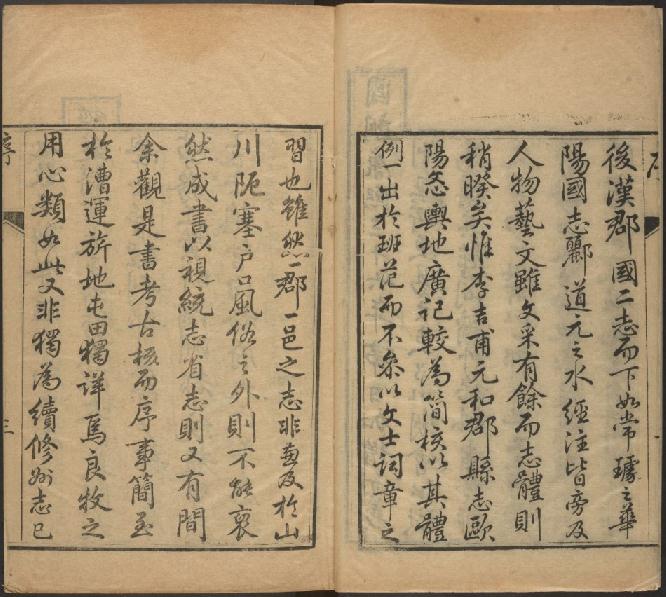 後漢郡國二志而下如常璩之華
陽國志酈道元之水經注皆旁及
人物藝文雖文采有餘而志體則
稍暌矣惟李吉甫元和郡縣志歐
陽忞輿地廣記較為簡核以其體
例一出於班范而不參以文士詞章之
習也雖然一郡一邑之志非兼及於山
川阨塞户口風俗之外則不能裒
然成書以視統志省志則又有間
余觀是書考古核而序事簡至
於漕運旂地屯田獨詳焉良牧之
用心類如此又非獨為續修州志已
序
三